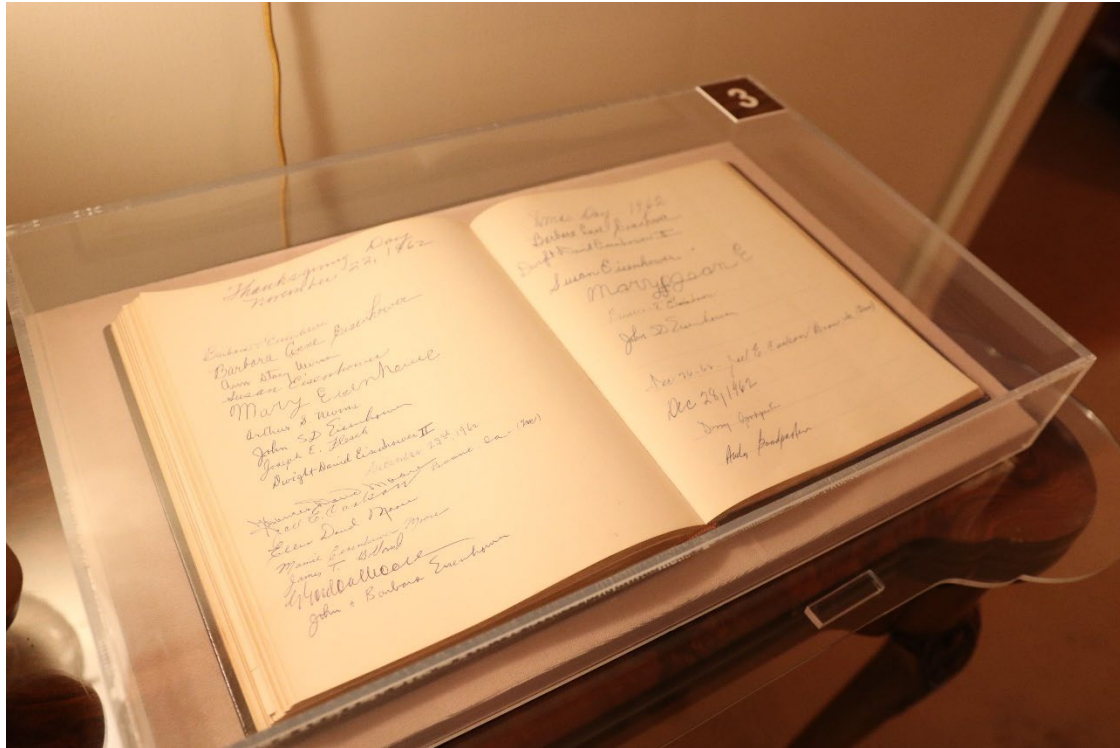 3
Thanksgiving Day
November 22, 1962
Barbara Eisenhower
Barbara Anne Eisenhower
Ann Stacy Nevins
Susan Eisenhower
Mary Eisenhower
Arthur S. Nevins
John SD Eisenhower
Joseph E.
Dwight David Eisenhower II
December 23rd, 1962
Joel E. Carlson Boone, Ia. (Doud)
Ellen Doud Moore
Mamie Eisenhower Moore
James T.
G Gordon Moore
John & Barbara Eisenhower
Xmas Day 1962
Barbara Anne Eisenhower
Dwight David Eisenhower II
Susan Eisenhower
Mary Jean E
Barbara T. Eisenhower
John SD Eisenhower
Dec 26-62 Joel E. Carlson Boone, Ia.
Dec 28, 1962
Andy Goodpaster